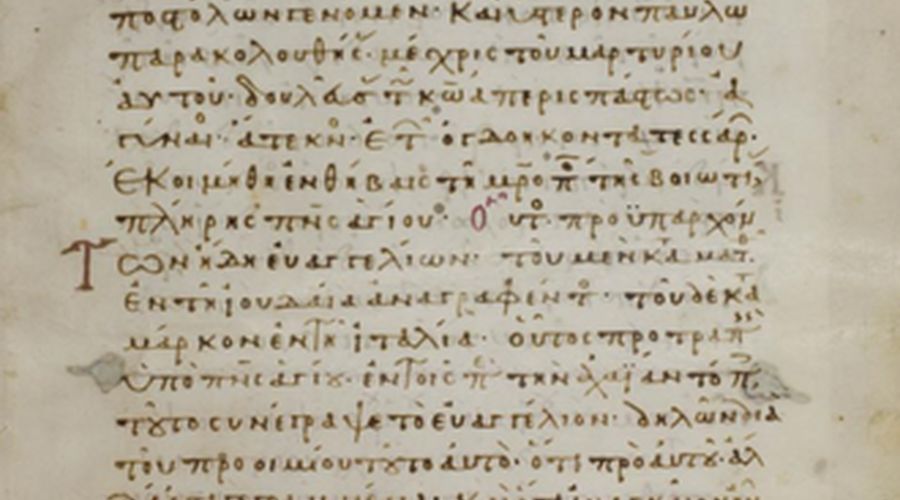 ποστόλων γενόμεν· Καὶ ὕστερον παύλω
παρακολουθής· μέχρις τοῦ μαρτυρίου
αὐτοῦ· δουλεύσ τ κω ἀπερισπάστως· ἀ
γύναι· ἄτεκν· ἐτ ὀγδοήκοντα τεσσάρ·
ἐκοιμήθη ἐν θήβαις τῆ μρο π τῆς βοιωτί
πλήρης πνς ἁγίου· Ο υτ προϋπαρχόν
Των ἤδη εὐαγγελίων· τοῦ μὲν κα ματ
ἐν τῆ ἰουδαία ἀναγραφέντ· τοῦ δὲ κα
μάρκον ἐν τῆ ἰταλία· οὗτος προτραπ
ὑπὸ πνς ἁγίου· ἐν τοῖς π τὴν ἀχαΐαν τὸ π
τοῦτο συνέγραψε τὸ εὐαγγέλιον· δηλῶν διὰ
τοῦ προοιμίου τοῦτο αὐτό· ὅτι πρὸ αὐτοῦ· ἀλ